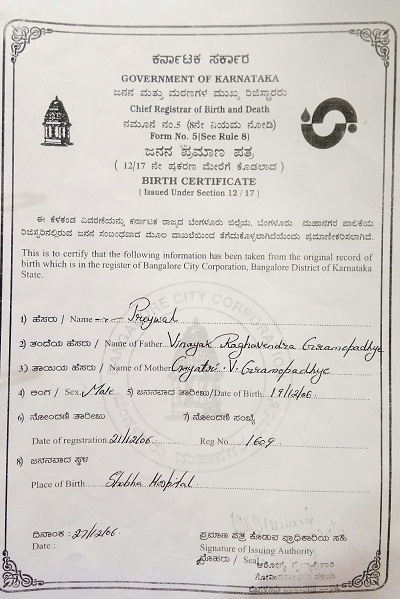 ಕರ್ನಾಟಕ ಸರ್ಕಾರ
GOVERNMENT OF KARNATAKA
ಜನನ ಮತ್ತು ಮರಣಗಳ ಮುಖ್ಯ ರಿಜಿಸ್ಟ್ರಾರರು
Chief Registrar of Birth and Death
ನಮೂನೆ ನಂ.5 (8ನೇ ನಿಯಮ ನೋಡಿ)
Form No. 5(See Rule 8)
ಜನನ ಪ್ರಮಾಣ ಪತ್ರ
( 12/17 ನೇ ಪ್ರಕರಣ ಮೇರೆಗೆ ಕೊಡಲಾದ )
BIRTH CERTIFICATE
( Issued Under Section 12 / 17 )
ಈ ಕೆಳಕಂಡ ವಿವರಣೆಯನ್ನು ಕರ್ನಾಟಕ ರಾಜ್ಯದ ಬೆಂಗಳೂರು ಜಿಲ್ಲೆಯ, ಬೆಂಗಳೂರು ಮಹಾನಗರ ಪಾಲಿಕೆಯ
ರಿಜಿಸ್ಟರಿನಲ್ಲಿರುವ ಜನನ ಸಂಬಂಧವಾದ ಮೂಲ ದಾಖಲೆಯಿಂದ ತೆಗೆದುಕೊಳ್ಳಲಾಗಿದೆಯೆಂದು ಪ್ರಮಾಣೀಕರಿಸಲಾಗಿದೆ.
This is to certify that the following information has been taken from the original record of
birth which is in the register of Bangalore City Corporation, Bangalore District of Karnataka
State.
1) ಹೆಸರು / Name Prajwal
2) ತಂದೆಯ ಹೆಸರು / Name of Father Vinayak Raghavendra Gramopadhye
3) ತಾಯಿಯ ಹೆಸರು / Name of Mother Gayatri . V . Gramopadhye
4) ಲಿಂಗ / Sex Male 5) ಜನನವಾದ ತಾರೀಖು/Date of Birth 19/12/06
6) ನೋಂದಣಿ ತಾರೀಖು 7) ನೋಂದಣಿ ಸಂಖ್ಯೆ
Date of registration 21/12/06 Reg No 1609
8) ಜನನವಾದ ಸ್ಥಳ
Place of Birth Shobha Hospital
ದಿನಾಂಕ : 27/12/06 ಪ್ರಮಾಣ ಪತ್ರ ಕೊಡುವ ಪ್ರಾಧಿಕಾರಿಯ ಸಹಿ
Date : Signature of Issuing Authority
ಮೊಹರು / Seal